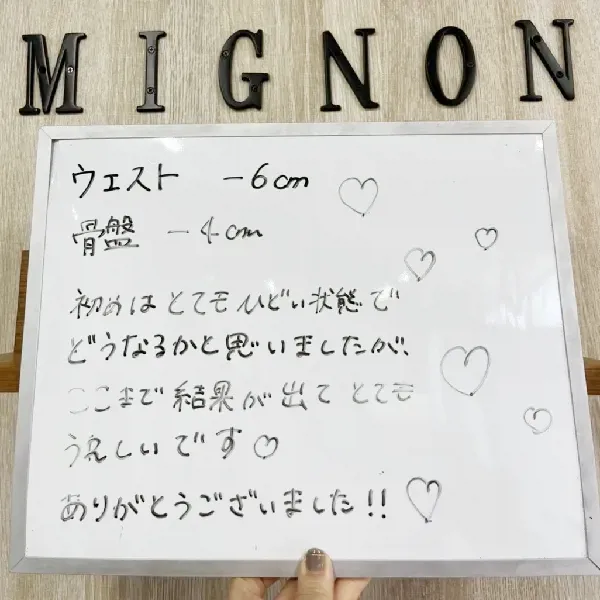 MIGNON
ウエスト -6cm
骨盤 -4cm
初めはとてもひどい状態で
どうなるかと思いましたが、
ここまで結果が出て とても
うれしいです♡
ありがとうございました!!